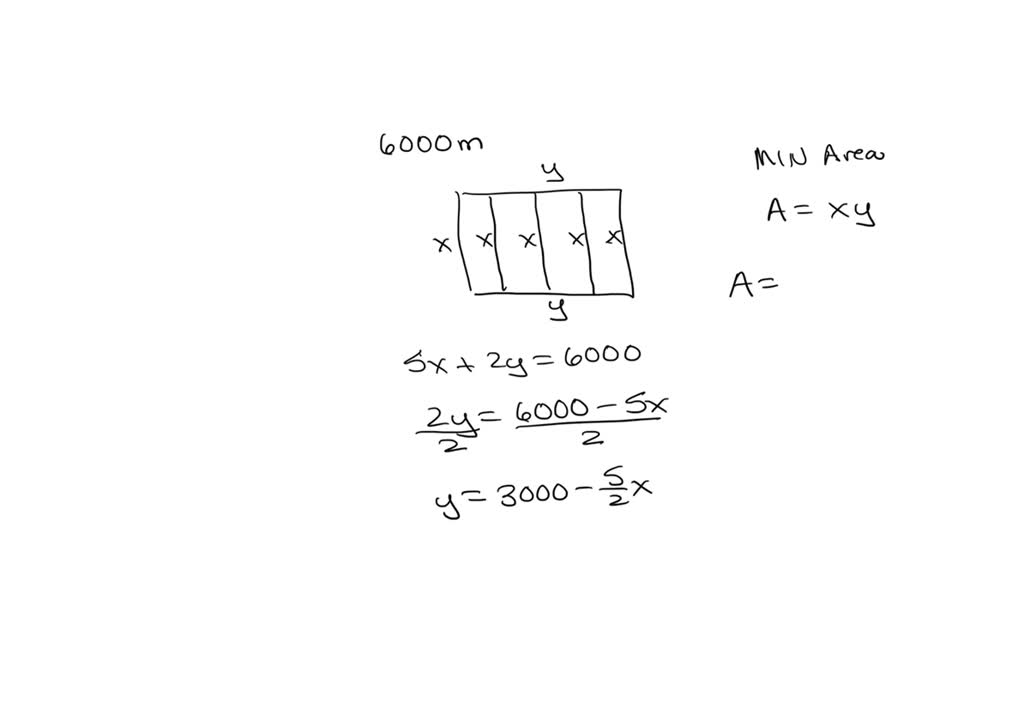 6000m
y
x x x x x
y
5x + 2y = 6000
2y/2 = (6000 - 5x)/2
y = 3000 - 5/2 x
MIN Area
A = xy
A =